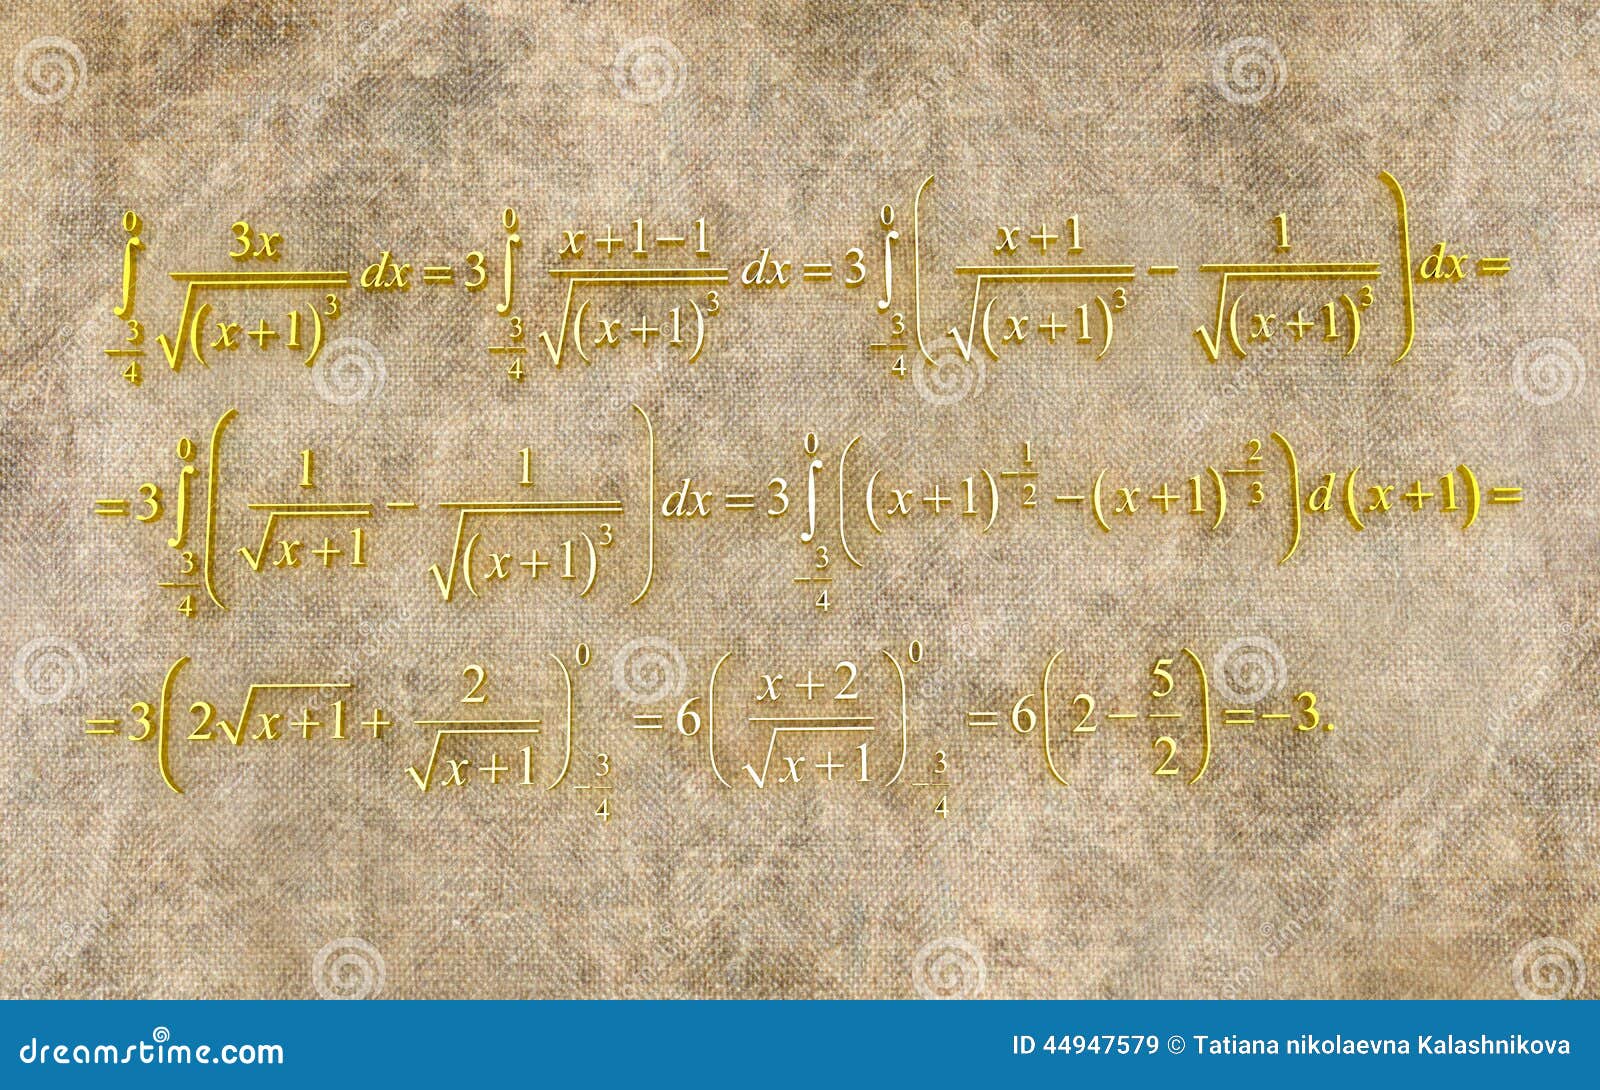 ∫_{-3/4}^{0} 3x/√((x+1)^3) dx = 3 ∫_{-3/4}^{0} (x+1-1)/√((x+1)^3) dx = 3 ∫_{-3/4}^{0} ( (x+1)/√((x+1)^3) - 1/√((x+1)^3) ) dx =
= 3 ∫_{-3/4}^{0} ( 1/√(x+1) - 1/√((x+1)^3) ) dx = 3 ∫_{-3/4}^{0} ( (x+1)^{-1/2} - (x+1)^{-2/3} ) d(x+1) =
= 3 ( 2√(x+1) + 2/√(x+1) )_{-3/4}^{0} = 6 ( (x+2)/√(x+1) )_{-3/4}^{0} = 6 ( 2 - 5/2 ) = -3.
dreamstime.com
ID 44947579 © Tatiana nikolaevna Kalashnikova